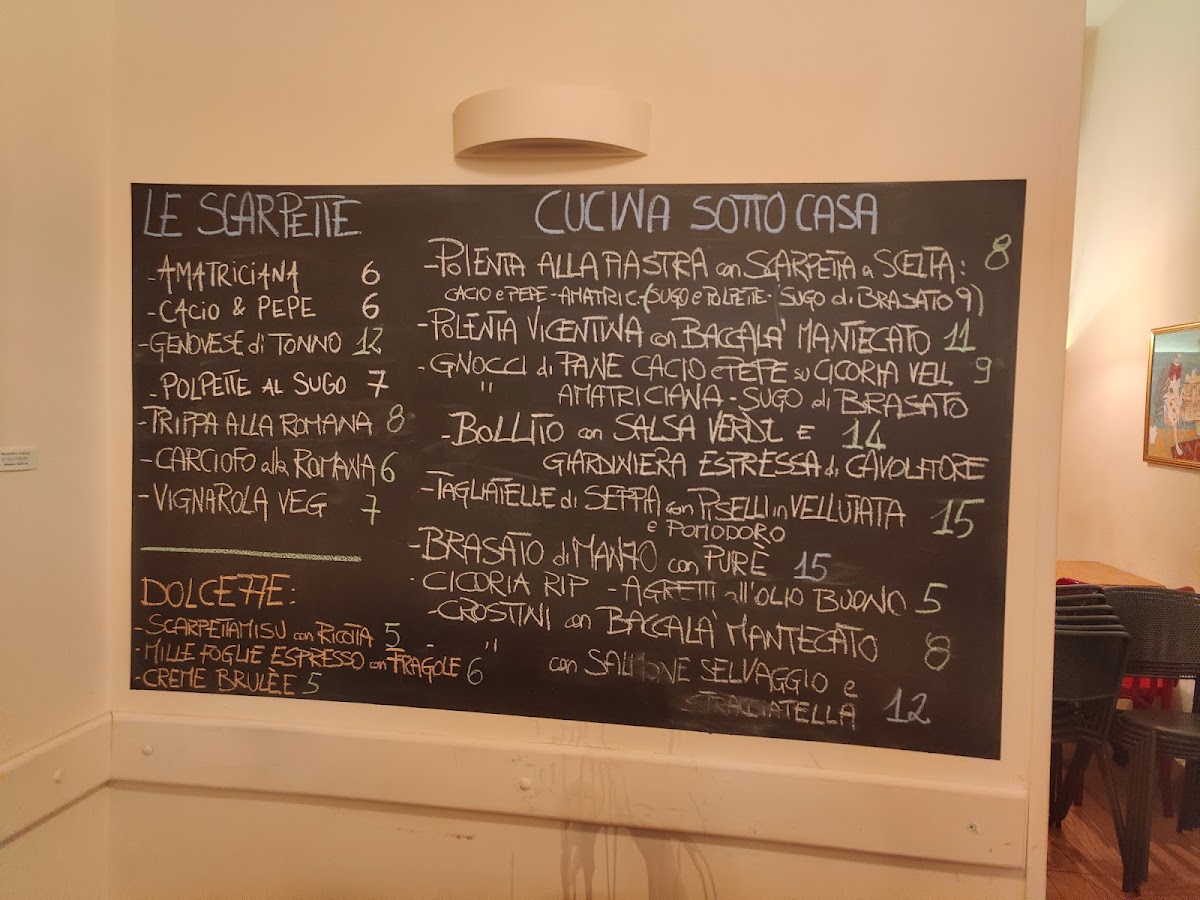 LE SCARPETTE
-AMATRICIANA 6
-CACIO & PEPE 6
-GENOVESE di TONNO 12
-POLPETTE AL SUGO 7
-TRIPPA ALLA ROMANA 8
-CARCIOFO alla ROMANA 6
-VIGNAROLA VEG 7
DOLCEZZE:
-SCARPETTAMISU con RICOTTA 5
-MILLE FOGLIE ESPRESSO con FRAGOLE 6
-CREME BRULÈE 5
CUCINA SOTTO CASA
-POLENTA ALLA PIASTRA con SCARPETTA a SCELTA: 8
CACIO e PEPE-AMATRIC-(SUGO e POLPETTE-(SUGO di BRASATO 9)
-POLENTA VICENTINA con BACCALA' MANTECATO 11
-GNOCCI di PANE CACIO e PEPE su CICORIA VELL 9
" AMATRICIANA-SUGO di BRASATO
-BOLLITO con SALSA VERDE E 14
GIARDINIERA ESPRESSA di CAVOLFIORE
-TAGLIATELLE di SEPPIA con PISELLI in VELLUTATA 15
e POMODORO
-BRASATO di MANZO con PURÈ 15
-CICORIA RIP - AGRETTI all'OLIO BUONO 5
-CROSTINI con BACCALA' MANTECATO 8
- " con SALMONE SELVAGGIO e
STRACCIATELLA 12